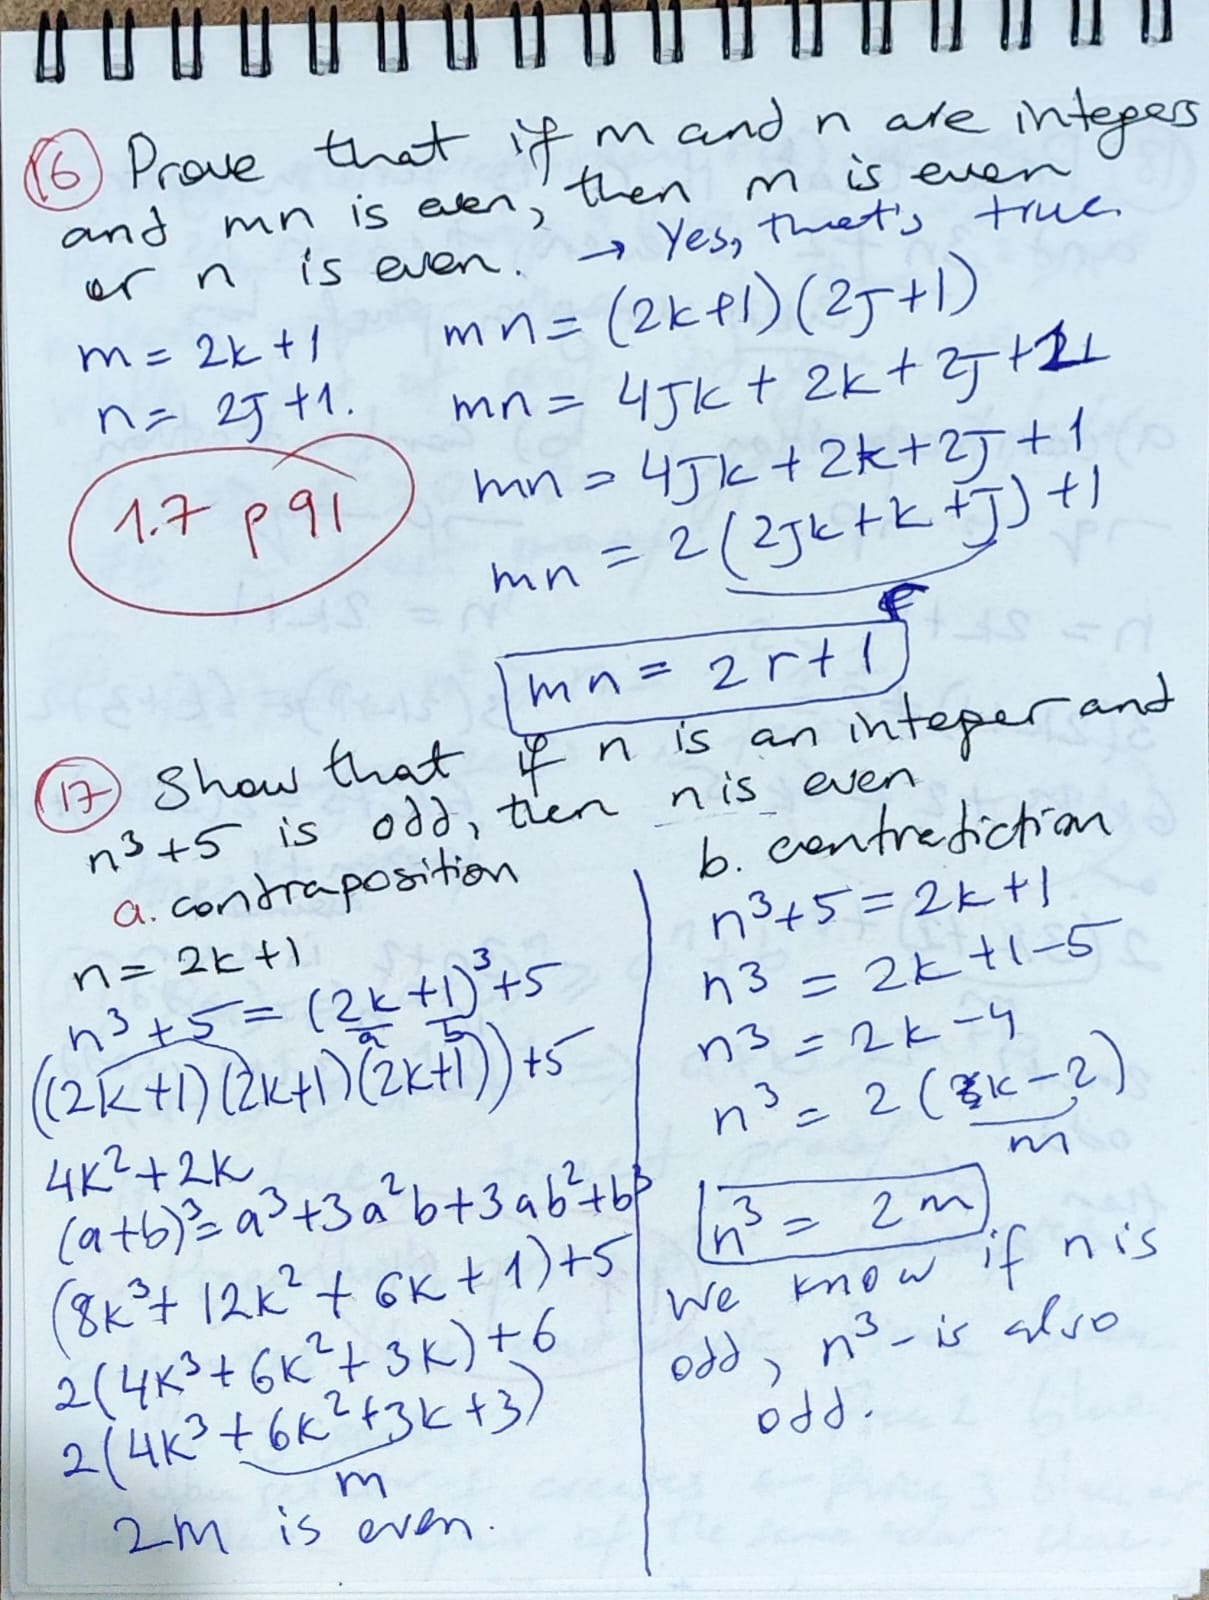 16 Prove that if m and n are integers
and mn is even, then m is even
or n is even. → Yes, that's true.
m = 2k+1
n = 2j+1.
1.7 p91
mn = (2k+1)(2j+1)
mn = 4jk + 2k + 2j + 1
mn = 4jk + 2k + 2j + 1
mn = 2(2jk+k+j)+1
r
mn = 2r+1
17 Show that if n is an integer and
n³+5 is odd, then n is even
a. contraposition
n = 2k+1
n³+5 = (2k+1)³+5
a b
((2k+1)(2k+1)(2k+1))+5
4k²+2k
(a+b)³= a³+3a²b+3ab²+b³
(8k³+ 12k² + 6k + 1)+5
2(4k³+6k²+3k)+6
2(4k³+6k²+3k+3)
m
2m is even.
b. contradiction
n³+5 = 2k+1
n³ = 2k+1-5
n³ = 2k-4
n³ = 2(k-2)
m
n³ = 2m
We know if n is
odd, n³-is also
odd.